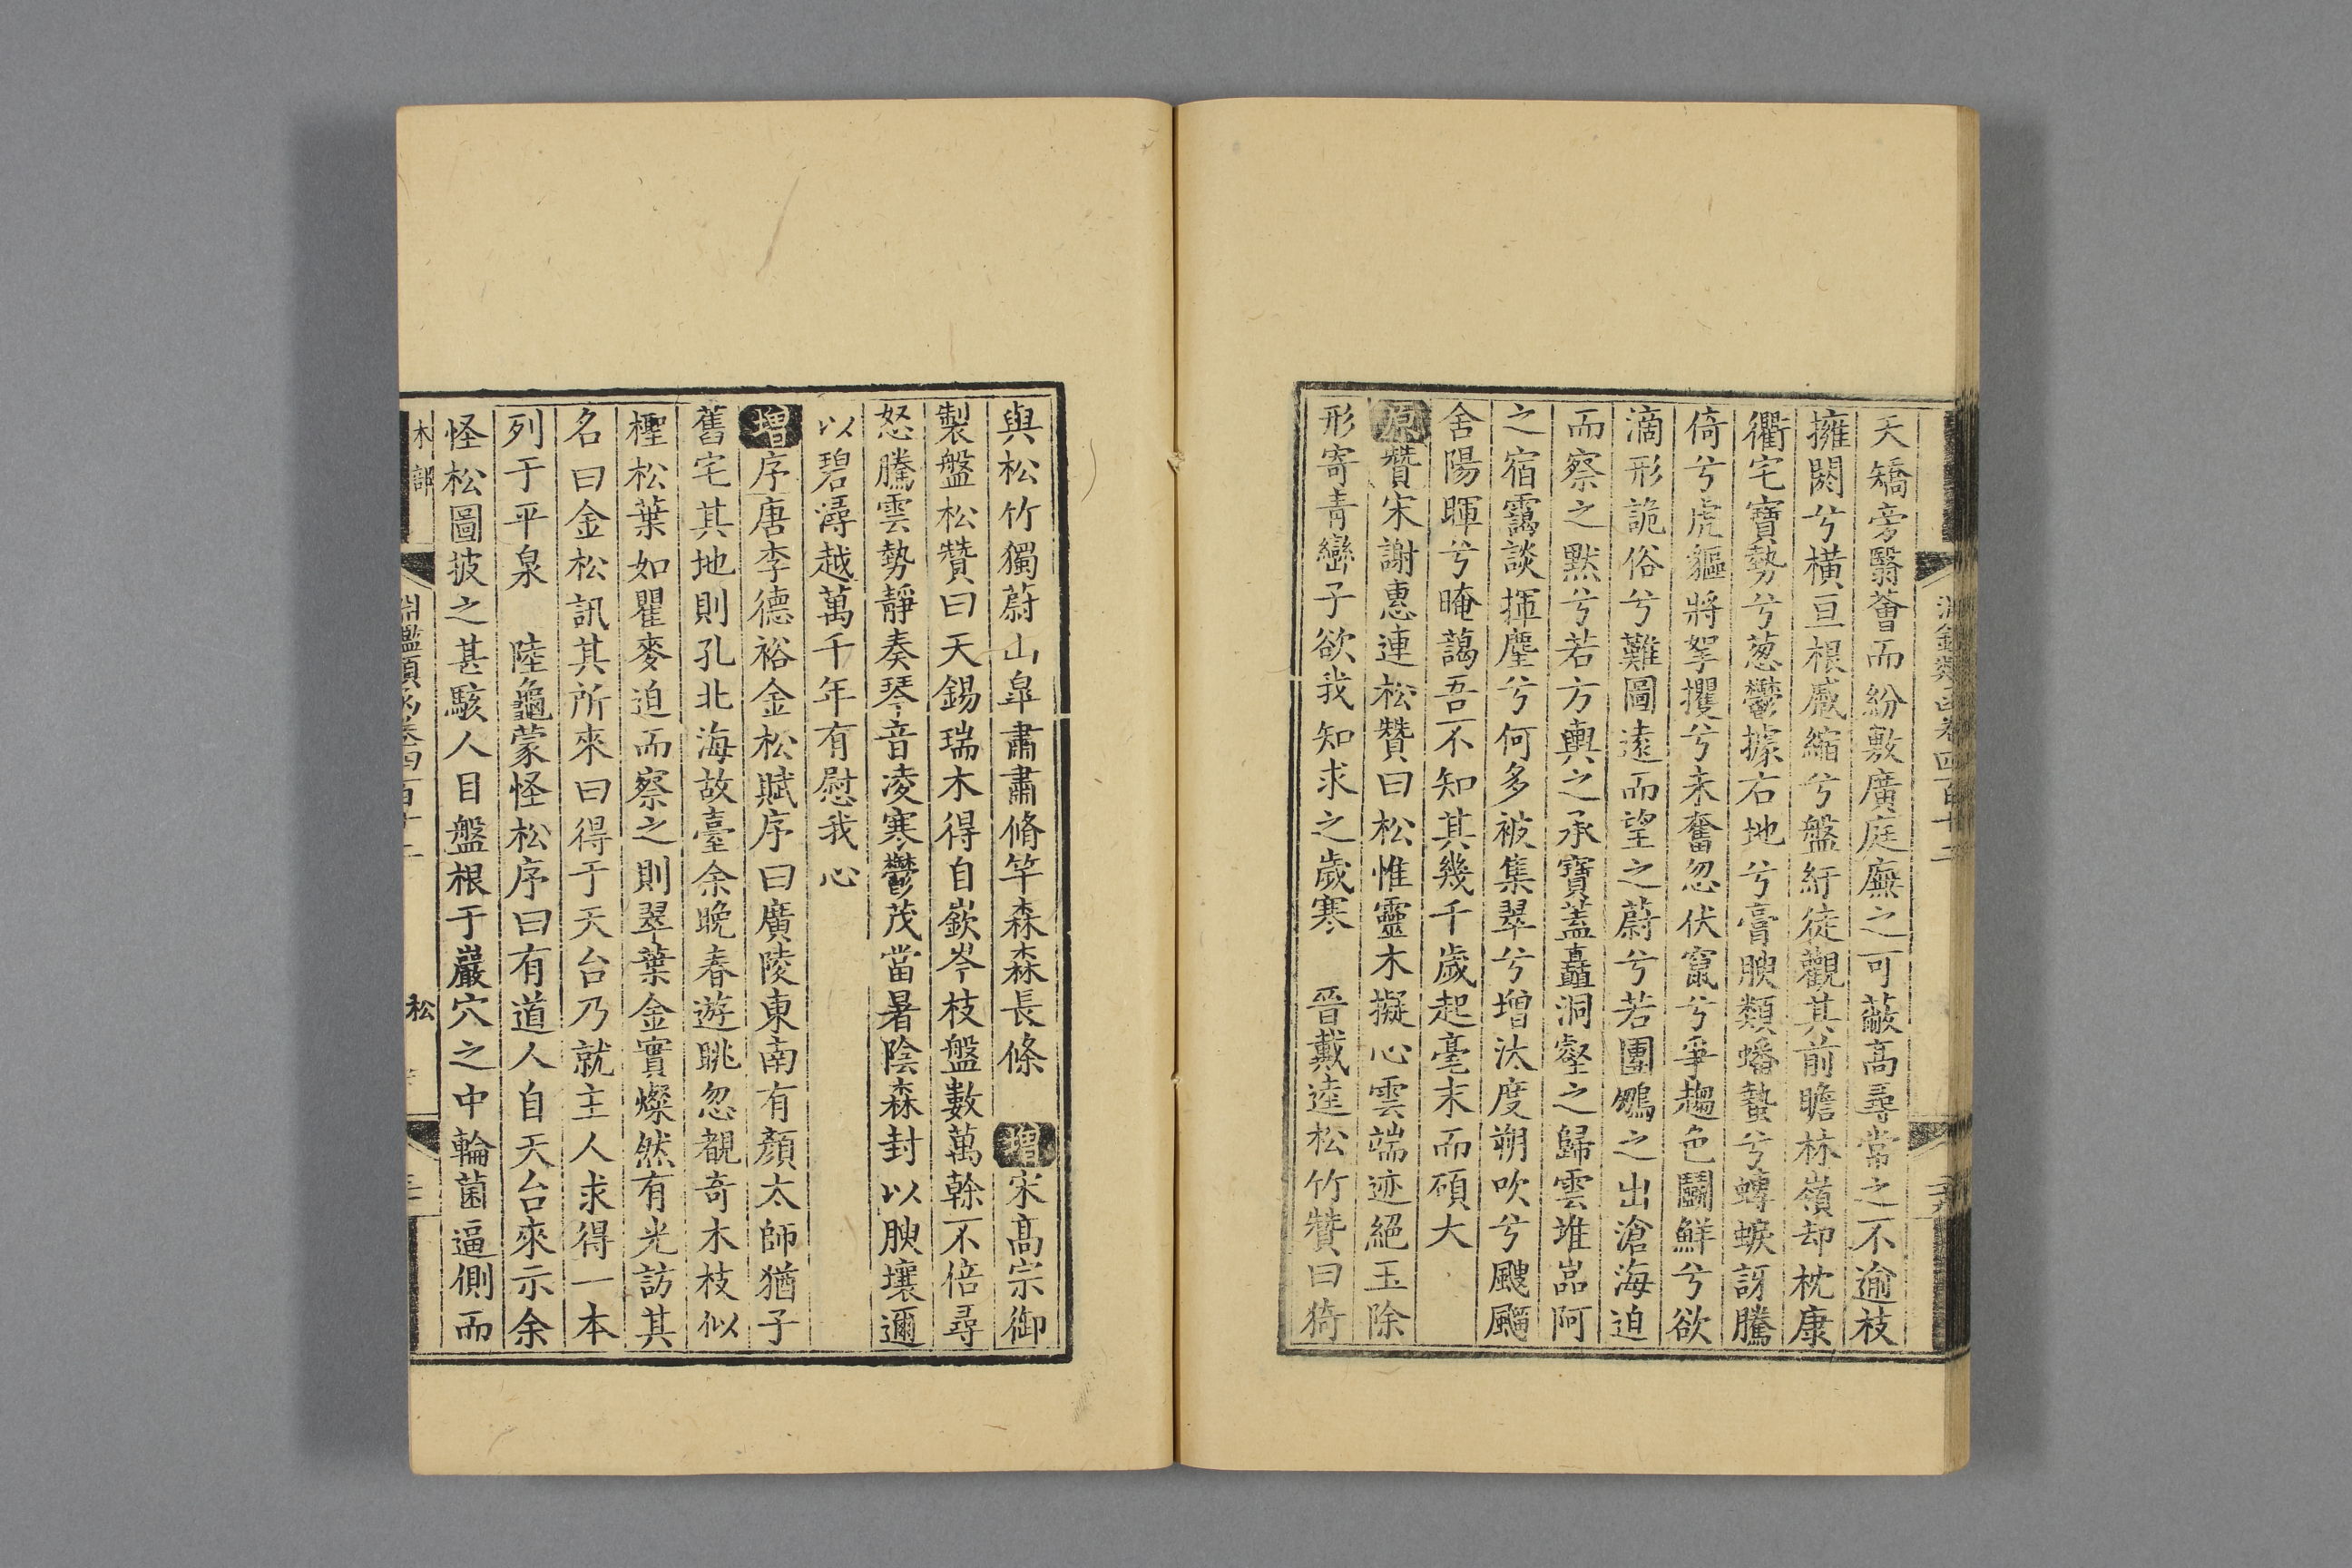 夭矯旁翳薈而紛敷廣庭廡之可蔽高尋常之不逾枝
擁閼兮橫亘根蹙縮兮盤紆徒觀其前瞻林嶺却枕康
衢宅寶勢兮葱鬱據右地兮膏腴類蟠蟄兮蟉蜧訝騰
倚兮虎貙將拏攫兮未奮忽伏竄兮爭趨色鬬鮮兮欲
滴形詭俗兮難圖遠而望之蔚兮若團鵬之出滄海迫
而察之黙兮若方輿之承寶蓋矗洞壑之歸雲堆嵓阿
之宿靄談揮麈兮何多被集翠兮增汰度朔吹兮颼飀
舍陽暉兮晻藹吾不知其幾千歲起毫末而碩大
原贊宋謝惠連松贊曰松惟靈木擬心雲端迹絕玉除
形寄青巒子欲我知求之歲寒　晉戴逵松竹贊曰猗
與松竹獨蔚山皐肅肅脩竿森森長條　增宋高宗御
製盤松贊曰天錫瑞木得自嶔岑枝盤數萬榦不倍尋
怒騰雲勢靜奏琴音凌寒鬱茂當暑陰森封以腴壤邇
以碧潯越萬千年有慰我心
增序唐李德裕金松賦序曰廣陵東南有顏太師猶子
舊宅其地則孔北海故臺余晚春遊眺忽覩奇木枝似
檉松葉如瞿麥迫而察之則翠葉金實燦然有光訪其
名曰金松訊其所來曰得于天台乃就主人求得一本
列于平泉　陸龜蒙怪松序曰有道人自天台來示余
怪松圖披之甚駭人目盤根于巖穴之中輪菌逼側而
木部　淵鑑類函卷四百十二　松